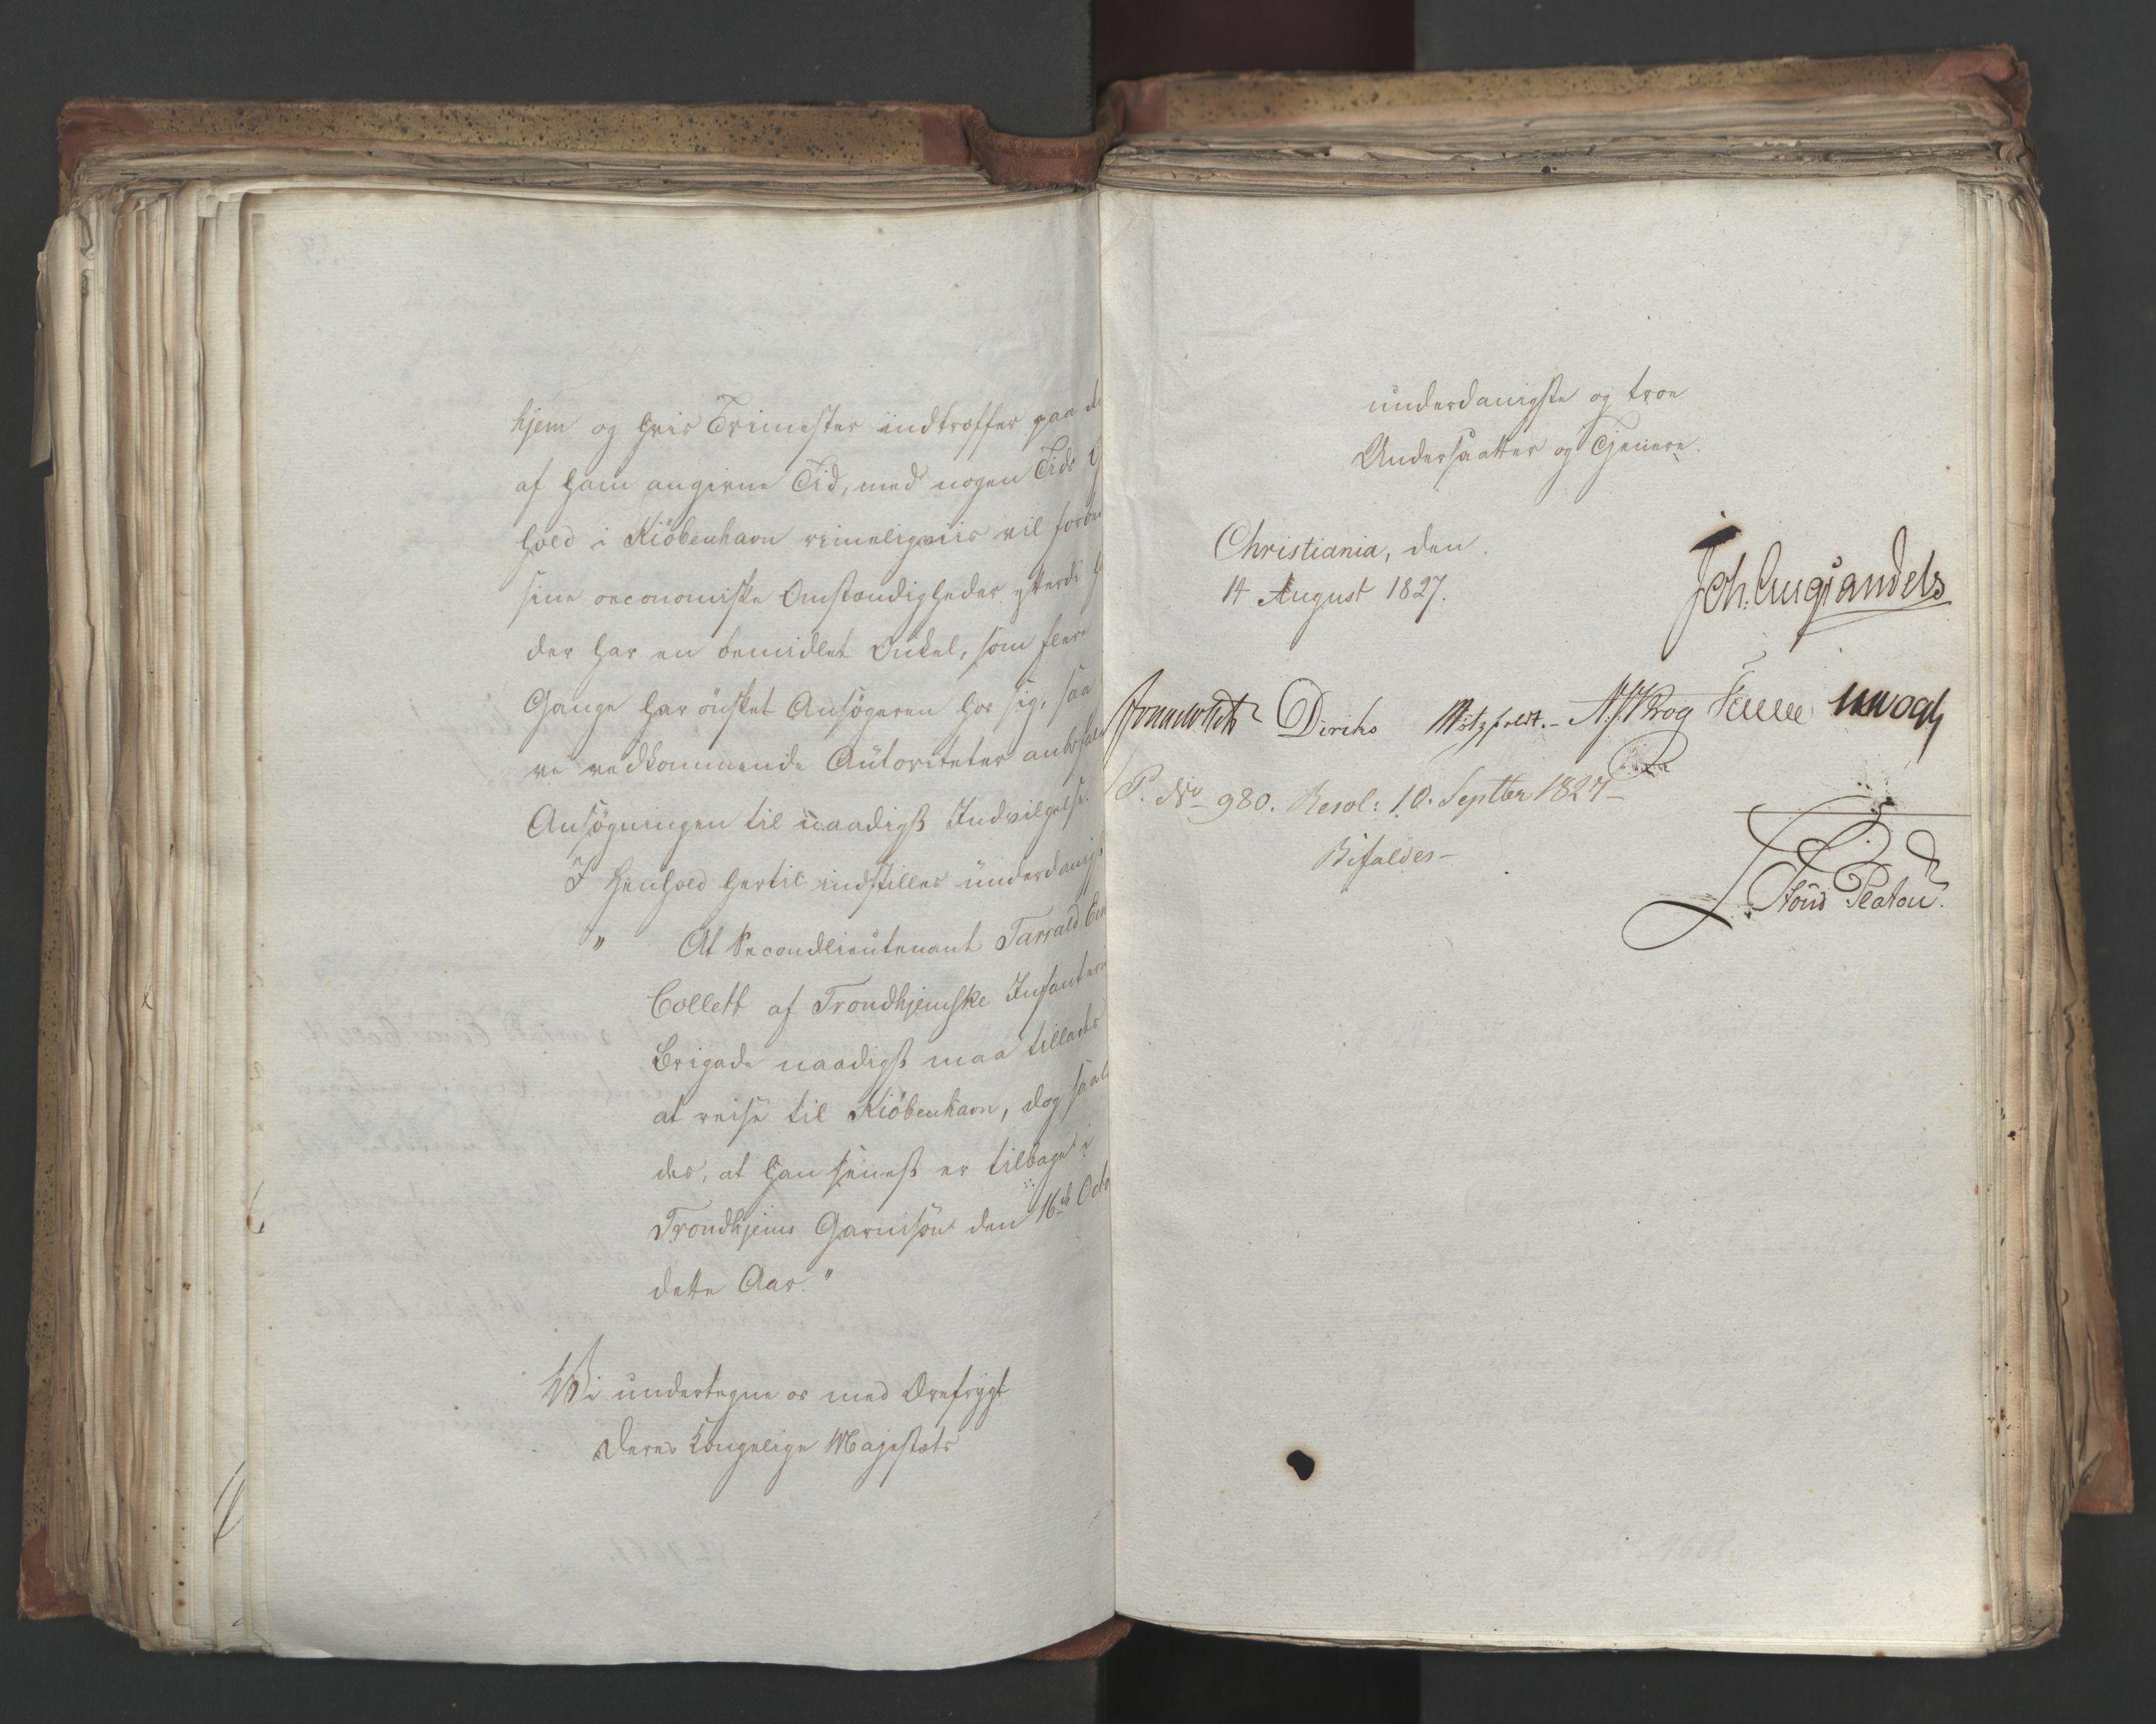 hjem og hvis Trimester indtræffer paa
af ham angivne Tid, med nogen Tids
hold i Kiöbenhavn rimeligviis vil
sine oeconomiske Omstændigheder efterdi
der har en bemidlet Onkel, som flere
Gange har önsket Ansögeren hos sig, saa
ve vedkommende Autoriteter
Ansögningen til naadigst Indvilgelse.
I Henhold hertil indstilles underdanigst
" At Secondlieutenant
Collett af Trondhjemske
Brigade naadigst maa tillades
at reise til Kiöbenhavn, dog
des, at han senest er tilbage i
Trondhjems Garnison den 16de
dette Aar."
Vi undertegne os med Ærefrygt
Deres Kongelige Majestæts
underdanigste og troe
Undersaatter og Tjenere.
Christiania, den
14 August 1827.
Joh. Aug. Sandels
Diriks Motzfeldt. Krog
P. No 980. Resol: 10. Septbr 1827
Bifaldes
Platou.